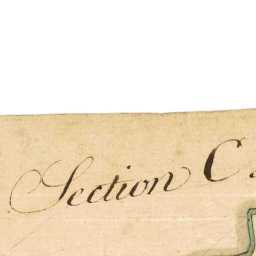 Section C.